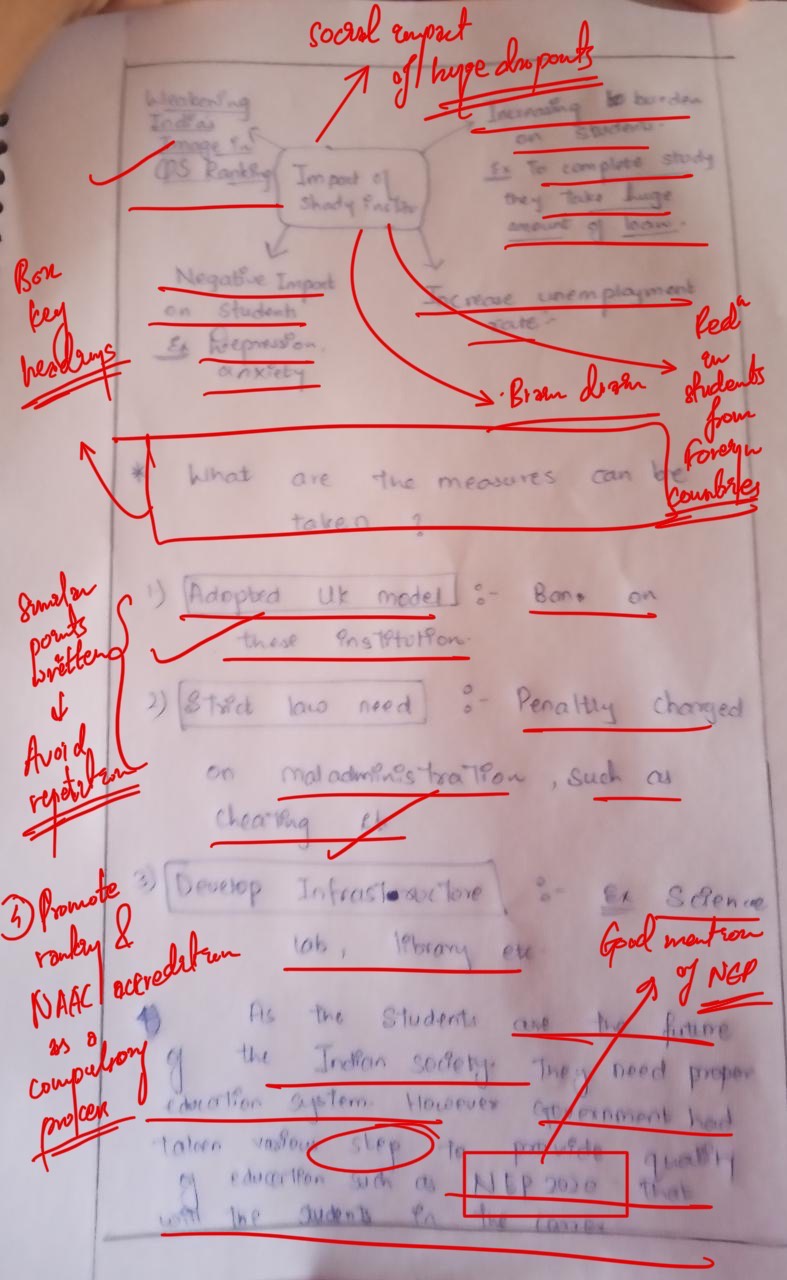 Social impact
of huge dropouts
Weakening
Indias
Image in
QS Ranking
Increasing burden
on students.
Ex To complete study
they take huge
amount of loan.
Impact of
shady
Negative Impact
on students
Ex Depression,
anxiety
Increase unemployment
rate.
Box
key
headings
Brain drain
Redn
in
students
from
Foreign
countries
* What are the measures can be
taken ?
Similar
points
written
↓
Avoid
repetition
1) Adopted UK model :- Ban on
these institution.
2) Strict law need :- Penaltly charged
on maladministration, such as
cheating etc
3) Develop Infrastructure :- Ex Science
lab, library etc
4) Promote
ranking &
NAAC accredation
as a
compulsory
process
Good mention
of NEP
As the students are the future
of the Indian society. They need proper
education system. However Government had
taken various step to provide quality
of education such as NEP 2020 that
will the students in the career